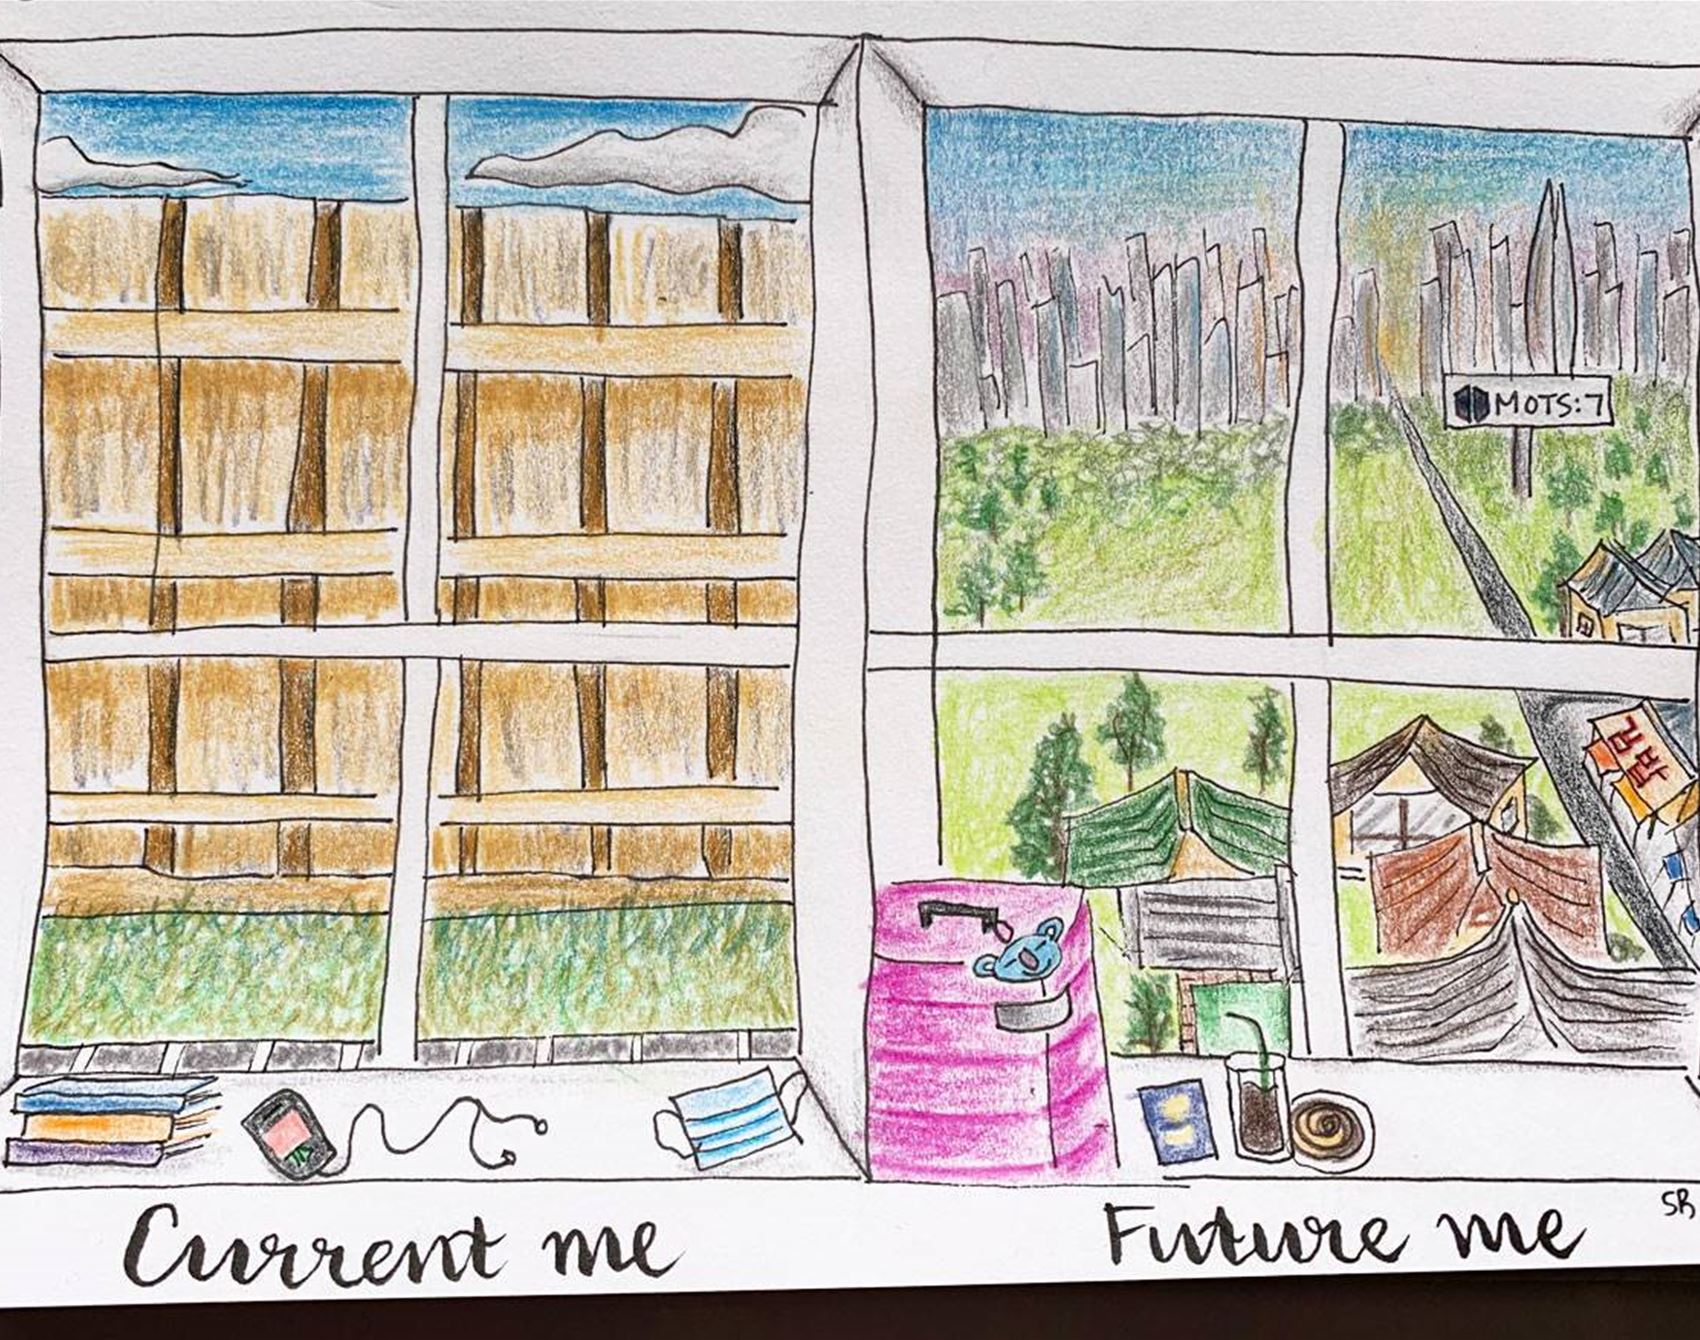 MOTS:7
김밥
Current me
Future me
SR